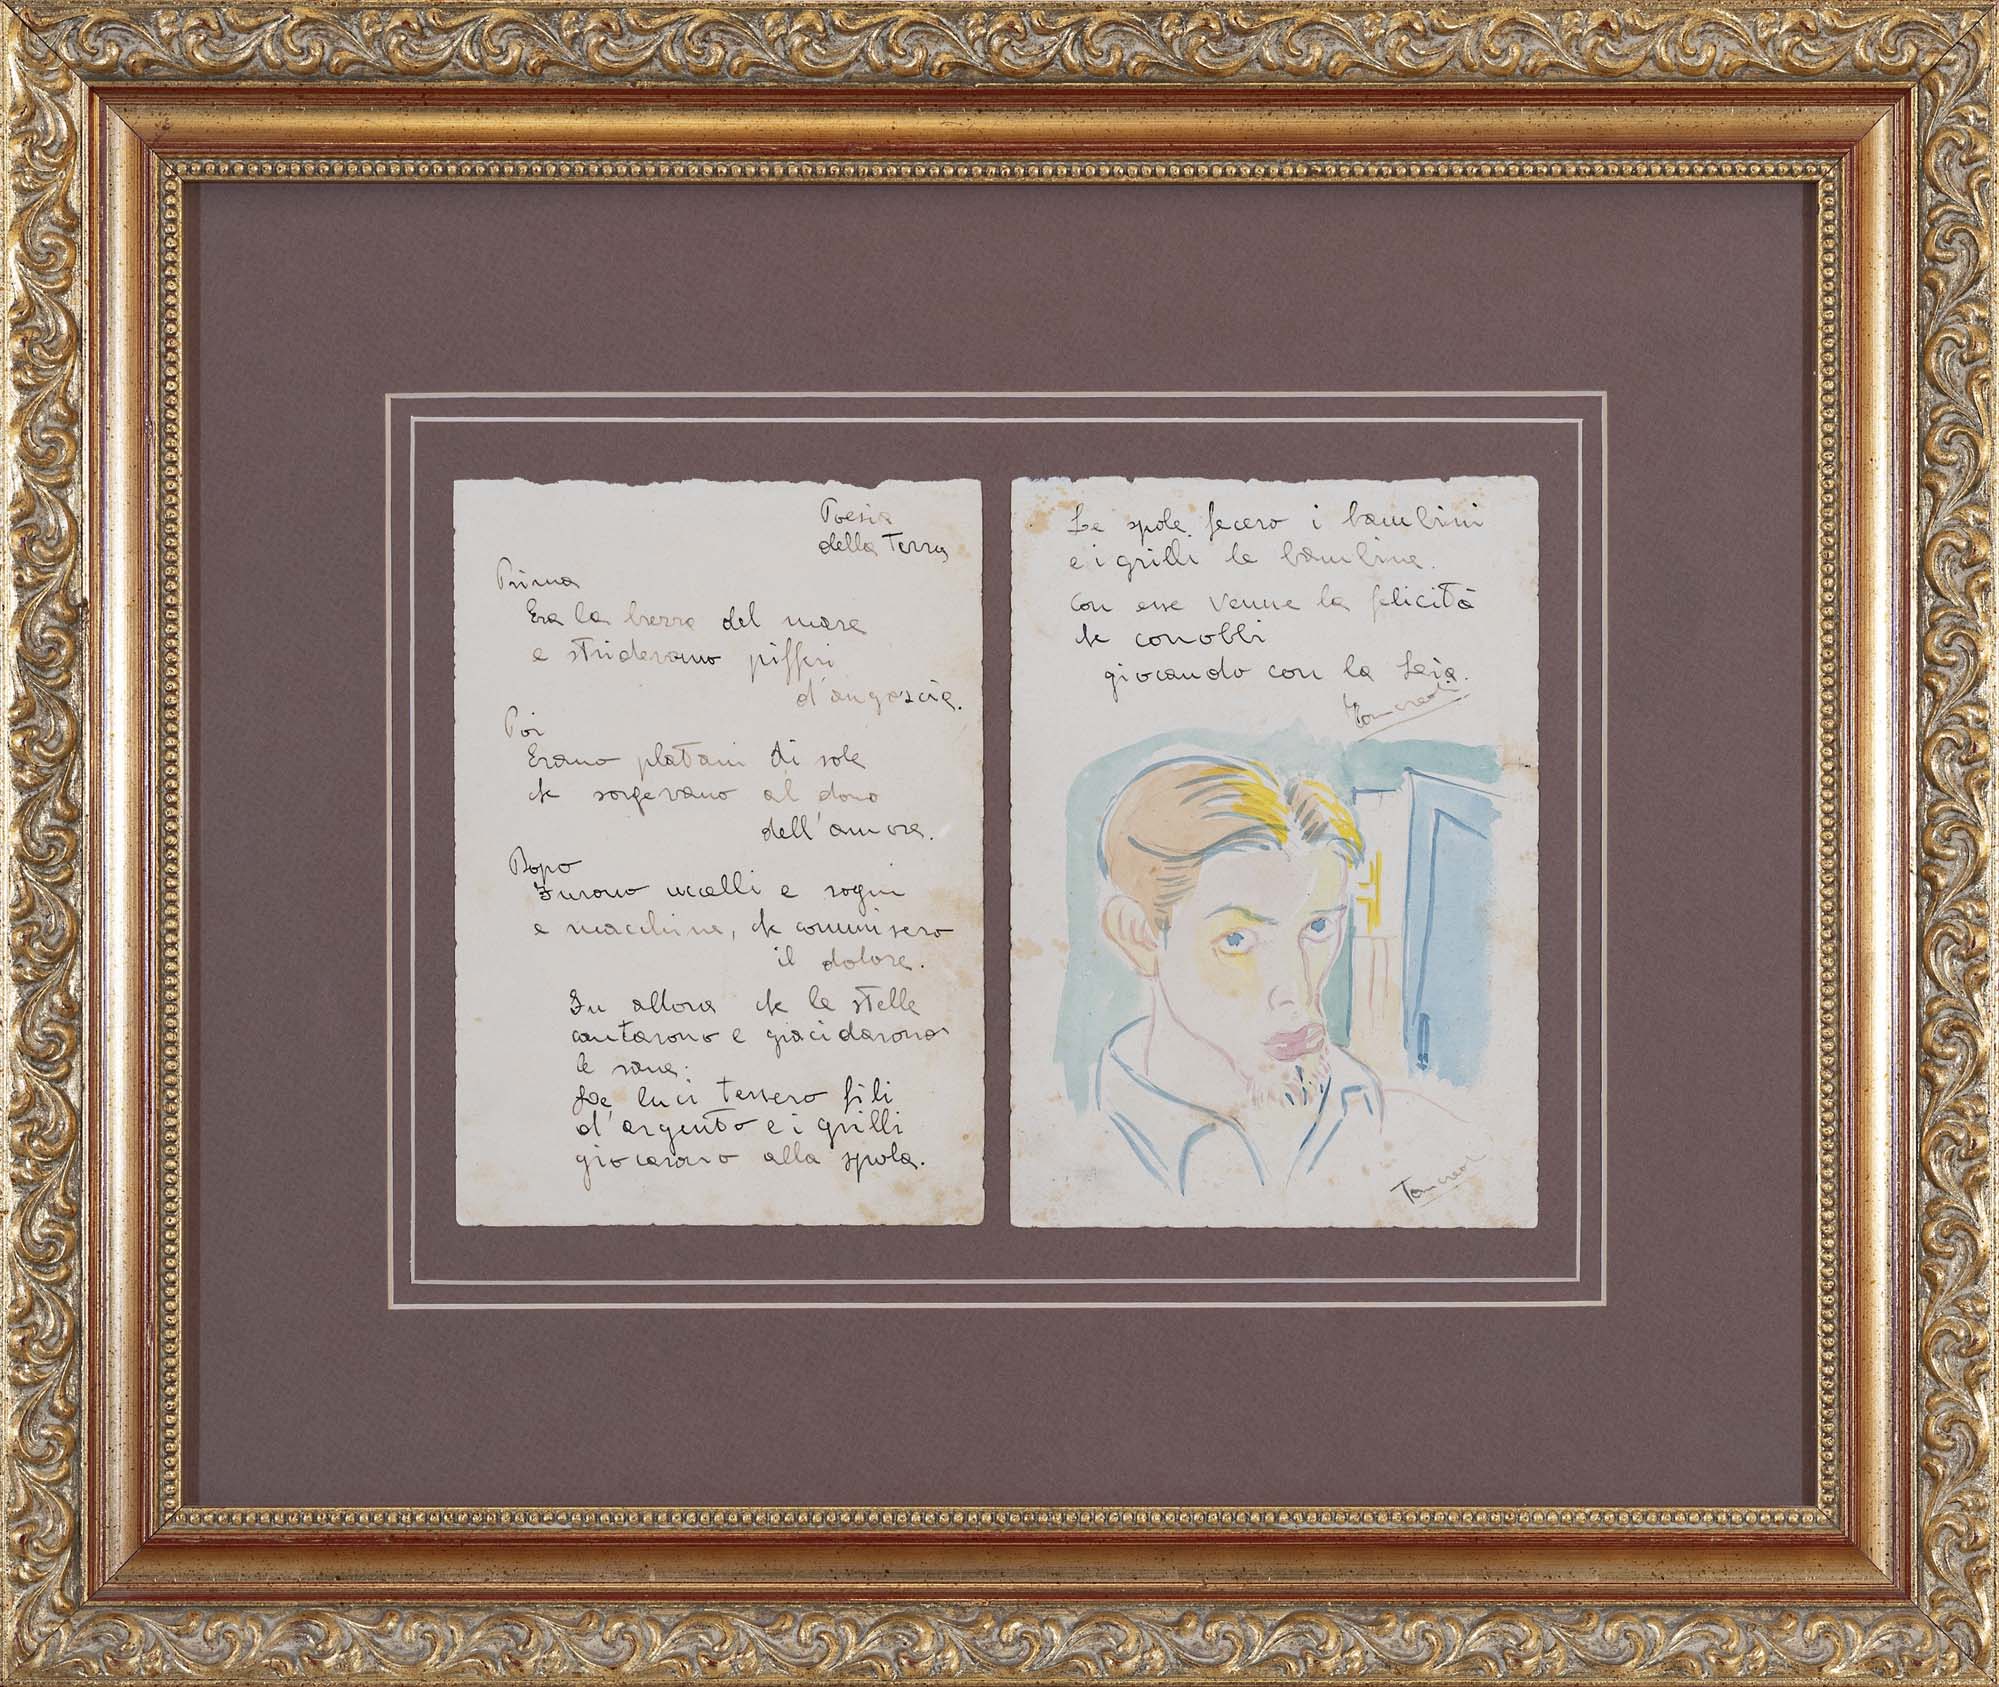 Poesia
della Terra
Prima
Era la brezza del mare
e stridevano pifferi
d'angoscia.
Poi
Erano platani di sole
che sorgevano al dono
dell'amore.
Dopo
Furono uccelli e sogni
e macchine, che commisero
il dolore.
Fu allora che le stelle
cantarono e gracidarono
le rane.
Le luci tessero fili
d'argento e i grilli
giocarono alla spola.
Le spole fecero i bambini
e i grilli le bambine.
con esse venne la felicità
che conobbi
giocando con la Leia.
Tancredi
Tancredi